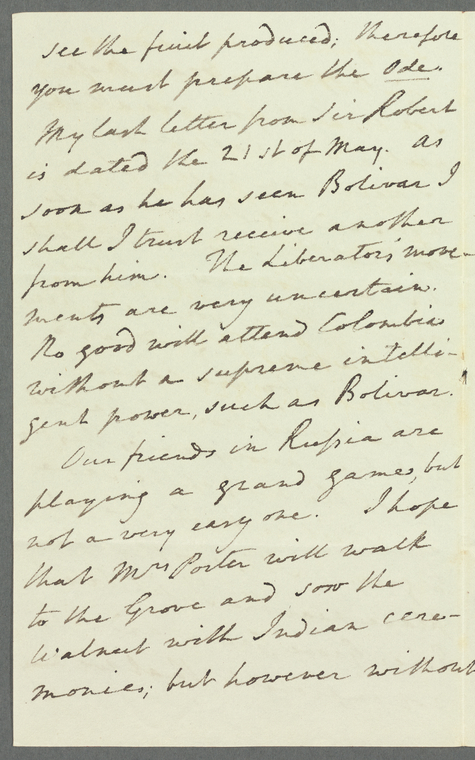 see the fruit produced; therefore
you must prepare the Ode.
My last letter from Sir Robert
is dated the 21st of May. As
soon as he has seen Bolivar I
shall I trust receive another
from him. The Liberator's move-
ments are very uncertain.
No good will attend Colombia
without a supreme intelli-
gent power, such as Bolivar.
Our friends in Russia are
playing a grand game, but
not a very easy one. I hope
that Mrs Porter will walk
to the Grove and sow the
Walnut with Indian cere-
monies; but however without